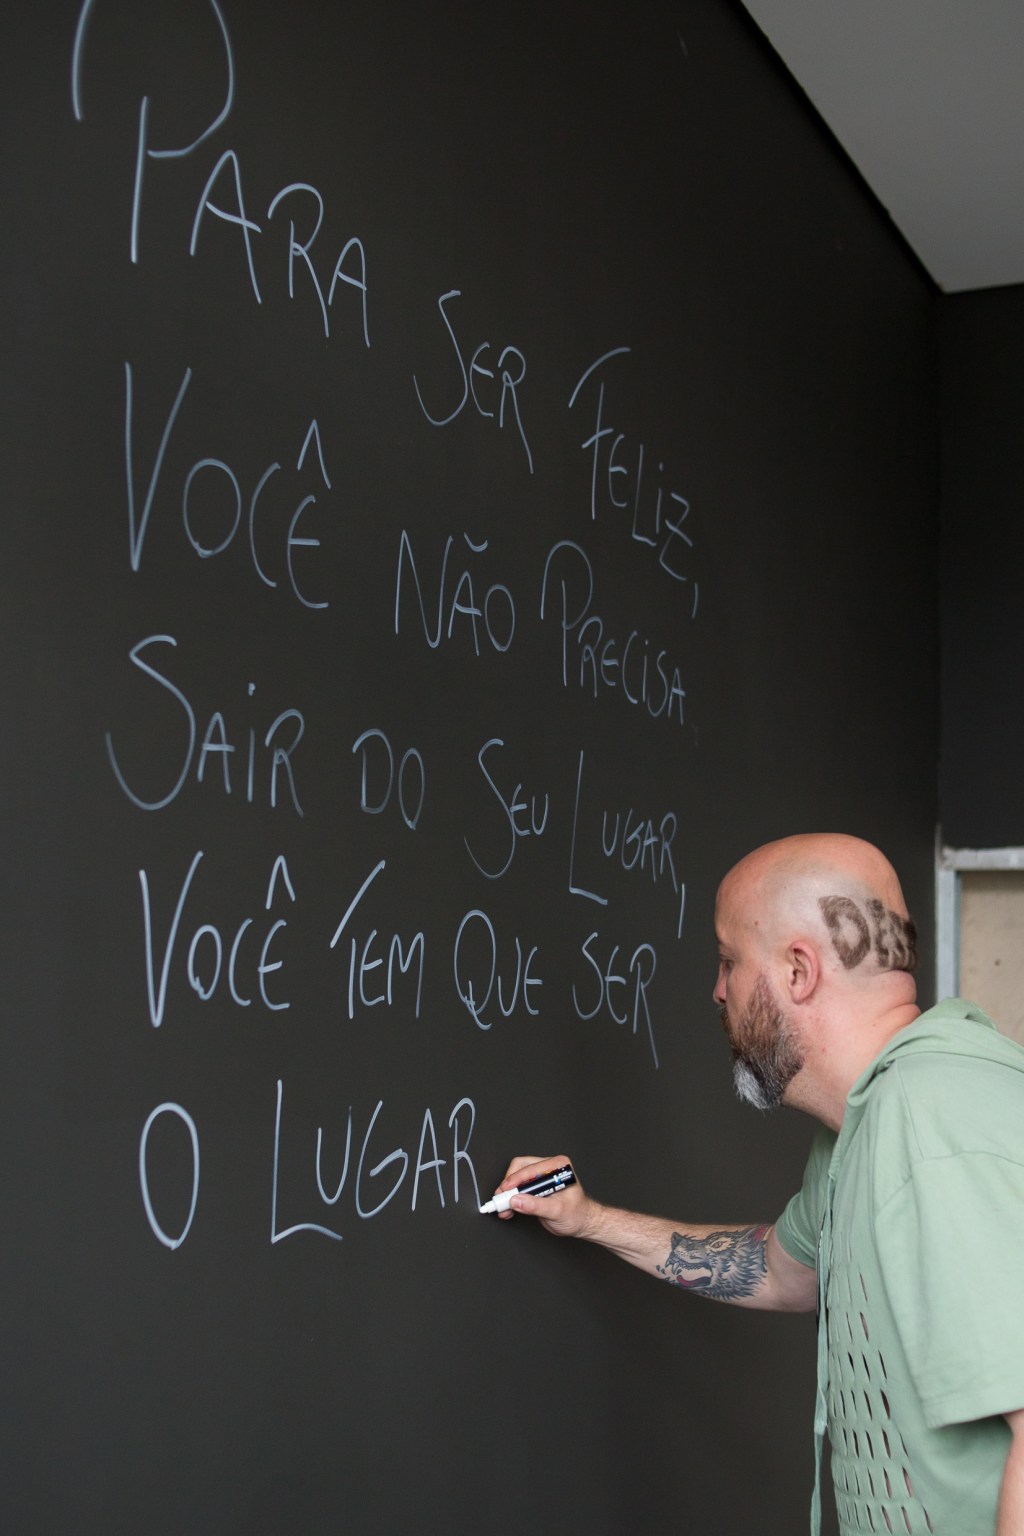 Para Ser Feliz,
Você Não Precisa
Sair do Seu Lugar,
Você Tem Que Ser
O Lugar